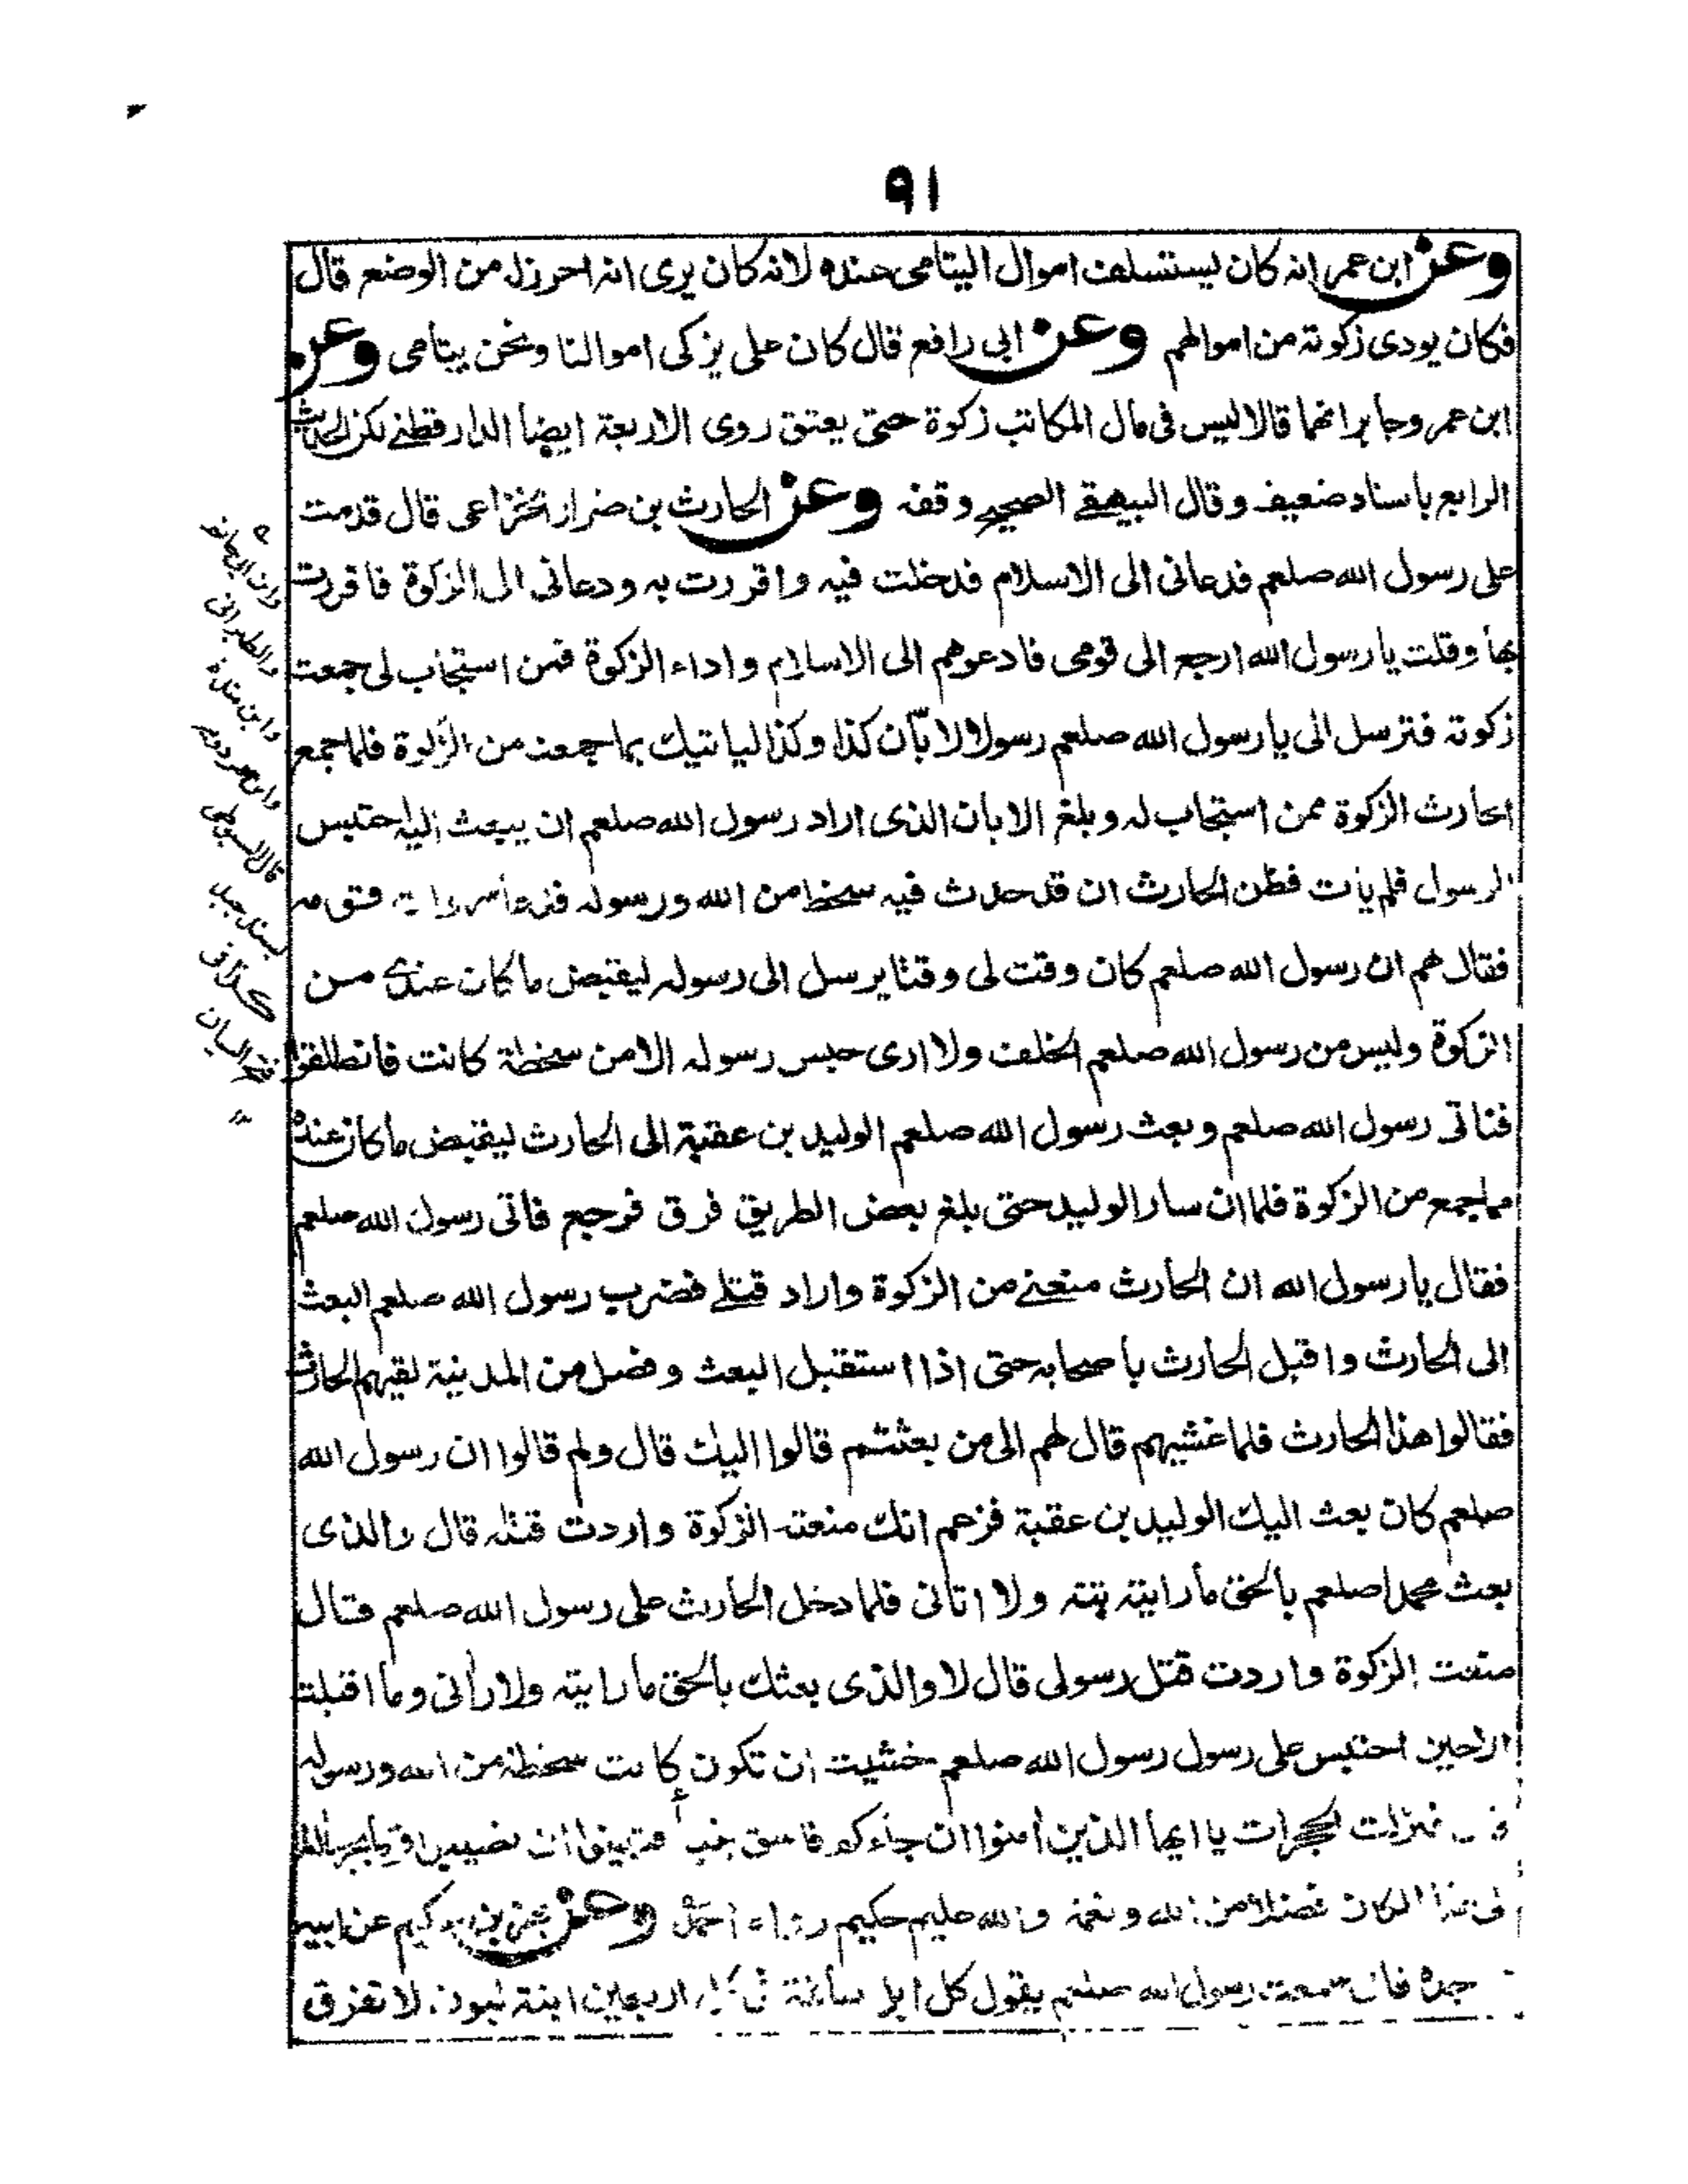 ٩١
وعن ابن عمر انه كان يستسلف اموال اليتامى عنده لانه كان يرى انه احرز له من الوضع قال
فكان يودى زكوته من اموالهم وعن ابى رافع قال كان على يزكى اموالنا ونحن يتامى وعن
ابن عمر وجابر انهما قالا ليس فى مال المكاتب زكوة حتى يعتق روى الاربعة ايضا الدارقطنى لكن الحديث
الرابع باسناد ضعيف وقال البيهقى الصحيح وقفه وعن الحارث بن ضرار الخزاعى قال قدمت
على رسول الله صلعم فدعانى الى الاسلام فدخلت فيه واقررت به ودعانى الى الزكوة فاقررت
بها وقلت يا رسول الله ارجع الى قومى فادعوهم الى الاسلام واداء الزكوة فمن استجاب لى جمعت
زكوته فترسل الى يا رسول الله صلعم رسولا لابّان كذا وكذا لياتيك بما جمعت من الزكوة فلما جمع
الحارث الزكوة ممن استجاب له وبلغ الابان الذى اراد رسول الله صلعم ان يبعث اليه احتبس
الرسول فلم يات فظن الحارث ان قد حدث فيه سخط من الله ورسوله فدعا
فقال لهم ان رسول الله صلعم كان وقت لى وقتا يرسل الى رسوله ليقبض ما كان عندى من
الزكوة وليس من رسول الله صلعم الخلف ولا ارى حبس رسوله الا من سخطة كانت فانطلقوا
فناتى رسول الله صلعم وبعث رسول الله صلعم الوليد بن عقبة الى الحارث ليقبض ما كان عنده
مما جمع من الزكوة فلما ان سار الوليد حتى بلغ بعض الطريق فرق فرجع فاتى رسول الله صلعم
فقال يا رسول الله ان الحارث منعنى من الزكوة واراد قتلى فضرب رسول الله صلعم البعث
الى الحارث واقبل الحارث باصحابه حتى اذا استقبل البعث وفصل من المدينة لقيهم الحارث
فقالوا هذا الحارث فلما غشيهم قال لهم الى من بعثتم قالوا اليك قال ولم قالوا ان رسول الله
صلعم كان بعث اليك الوليد بن عقبة فزعم انك منعته الزكوة واردت قتله قال والذى
بعث محمدا صلعم بالحق ما رايته بتة ولا اتانى فلما دخل الحارث على رسول الله صلعم قال
منعت الزكوة واردت قتل رسولى قال لا والذى بعثك بالحق ما رايته ولا رأنى وما اقبلت
الا حين احتبس على رسول رسول الله صلعم خشيت ان تكون كانت سخطة من الله ورسوله
فنزلت الحجرات يا ايها الذين أمنوا ان جاءكم فاسق بنبأ فتبينوا ان تصيبوا قوما بجهالة
الى هذا المكان فضلا من الله ونعمة والله عليم حكيم رواه احمد وعن بهز بن حكيم عن ابيه
جده قال سمعت رسول الله صلعم يقول كل ابل سائمة فى كل اربعين ابنة لبون لا تفرق
والطبرانى
وابن مندة
وابن مردويه
قال السيوطى
بسند جيد
كذا فى
فتح البيان